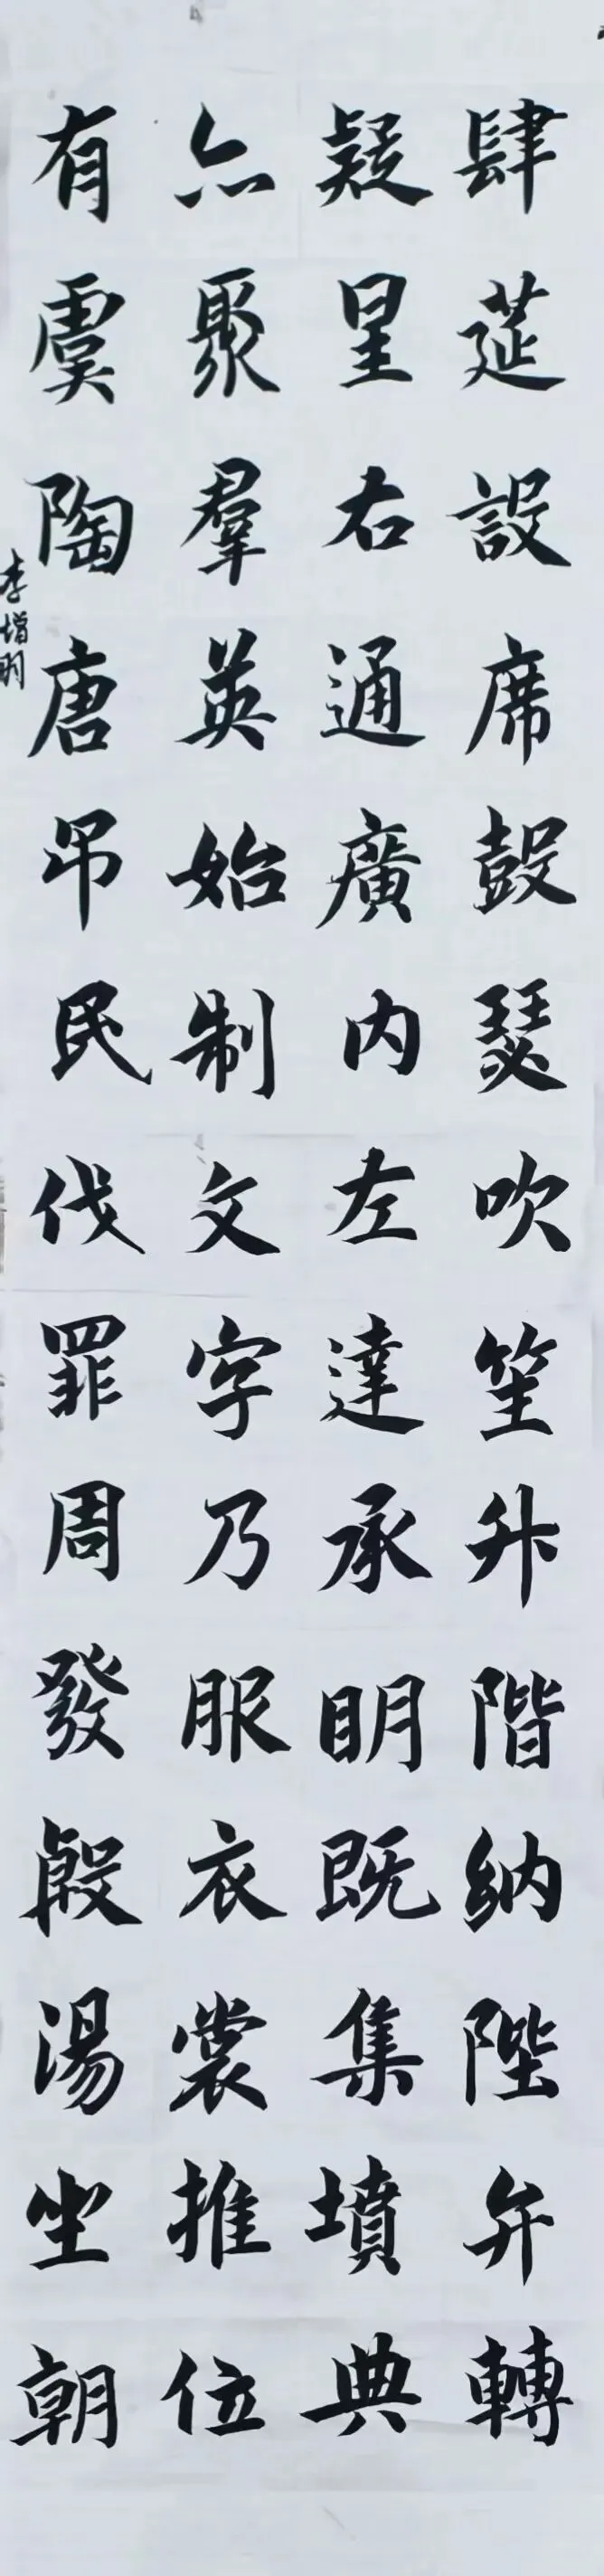 肆莚設席鼓瑟吹笙升階納陛弁轉
疑星右通廣内左達承明既集墳典
亦聚羣英始制文字乃服衣裳推位
有虞陶唐吊民伐罪周發殷湯坐朝
李增明